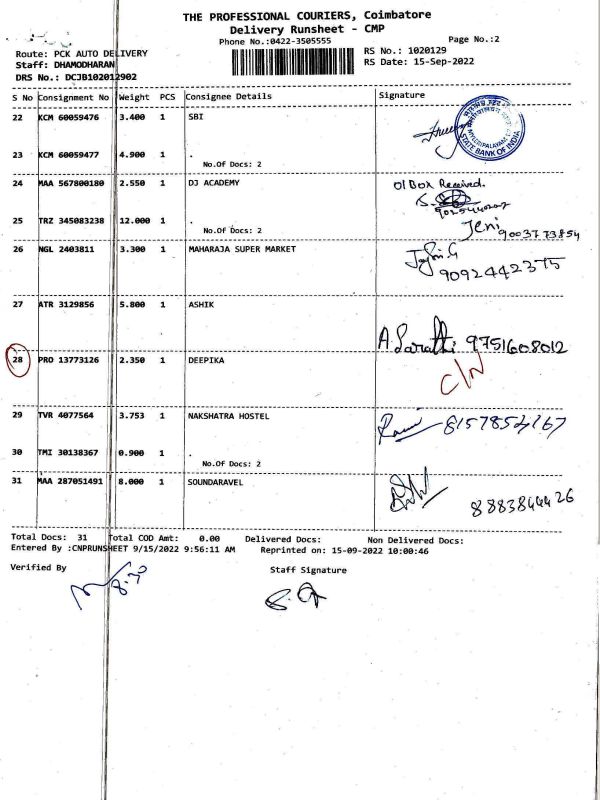 THE PROFESSIONAL COURIERS, Coimbatore
Delivery Runsheet - CMP
Phone No.:0422-3505555
Page No.:2
Route: PCK AUTO DELIVERY
RS No.: 1020129
Staff: DHAMODHARAN
RS Date: 15-Sep-2022
DRS No.: DCJB102012902
S No Consignment No Weight PCS Consignee Details Signature
22 KCM 60059476 3.400 1 SBI
STATE BANK OF INDIA
23 KCM 60059477 4.900 1 .
No.Of Docs: 2
24 MAA 567800180 2.550 1 DJ ACADEMY
01 Box Received.
25 TRZ 345083238 12.000 1 .
No.Of Docs: 2
Jeni 9003773854
26 NGL 2403811 3.300 1 MAHARAJA SUPER MARKET
9092442375
27 ATR 3129856 5.800 1 ASHIK
A. Sarathi 9751608012
28 PRO 13773126 2.350 1 DEEPIKA
C/N
29 TVR 4077564 3.753 1 NAKSHATRA HOSTEL
30 TMI 30138367 0.900 1 .
No.Of Docs: 2
31 MAA 287051491 8.000 1 SOUNDARAVEL
8883844426
Total Docs: 31 Total COD Amt: 0.00 Delivered Docs: Non Delivered Docs:
Entered By :CNPRUNSHEET 9/15/2022 9:56:11 AM Reprinted on: 15-09-2022 10:00:46
Verified By
Staff Signature